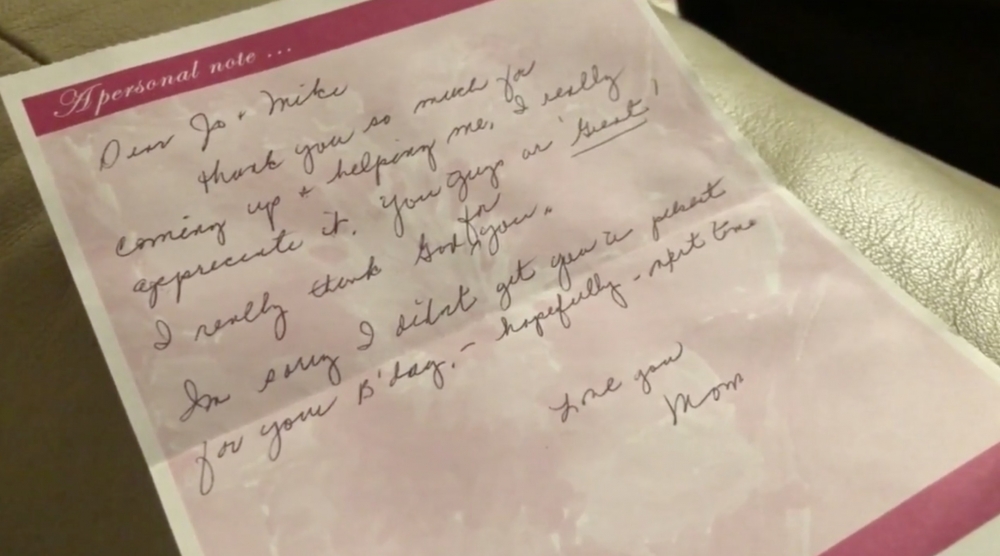 A personal note ...
Dear Jo + Mike
thank you so much for
coming up + helping me, I really
appreciate it. You guys are 'Great'!
I really thank God for you.
Im sorry I didnt get you a present
for your B'day. - hopefully - next time
Love you
Mom